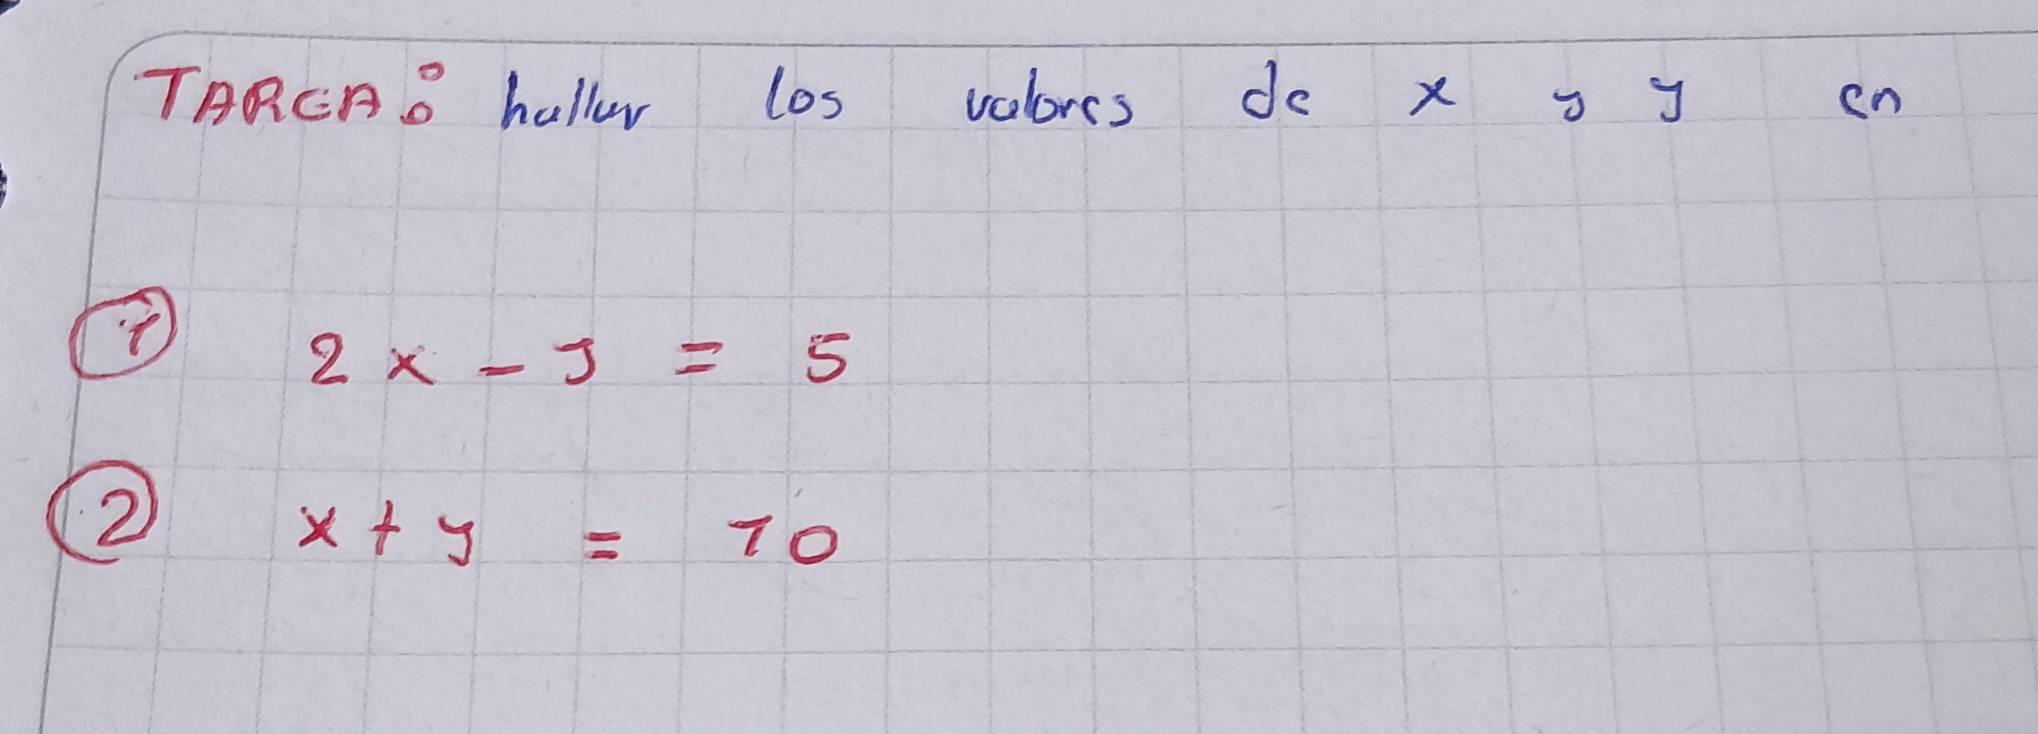 TAREA: hallar los valores de x y y en
① 2x - y = 5
② x + y = 10